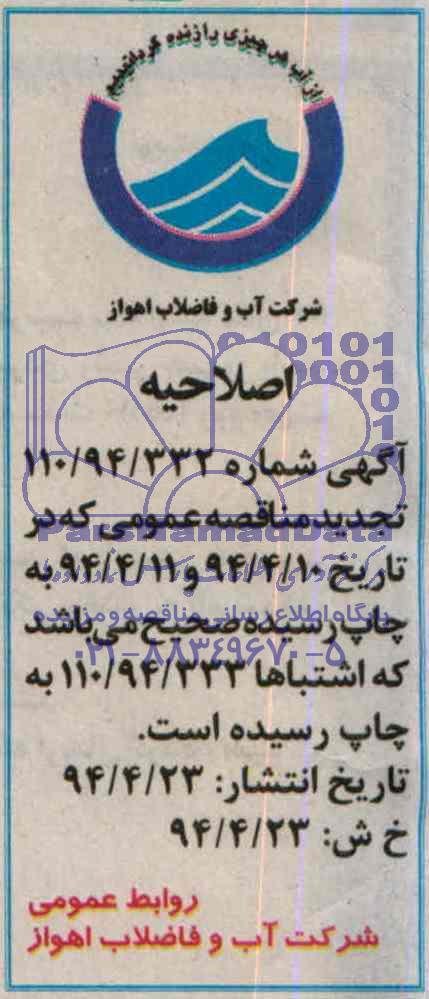 از آب هر چیزی را زنده گردانیدیم
شرکت آب و فاضلاب اهواز
اصلاحیه
آگهی شماره ۱۱۰/۹۴/۳۳۲
تجدید مناقصه عمومی که در
تاریخ ۹۴/۴/۱۰ و ۹۴/۴/۱۱ به
چاپ رسیده صحیح می‌باشد
که اشتباها ۱۱۰/۹۴/۳۳۳ به
چاپ رسیده است.
تاریخ انتشار: ۹۴/۴/۲۳
خ ش: ۹۴/۴/۲۳
روابط عمومی
شرکت آب و فاضلاب اهواز
ParsNamadData
پایگاه اطلاع رسانی مناقصه و مزایده
۰۲۱-۸۸۳۴۹۶۷۰-۵